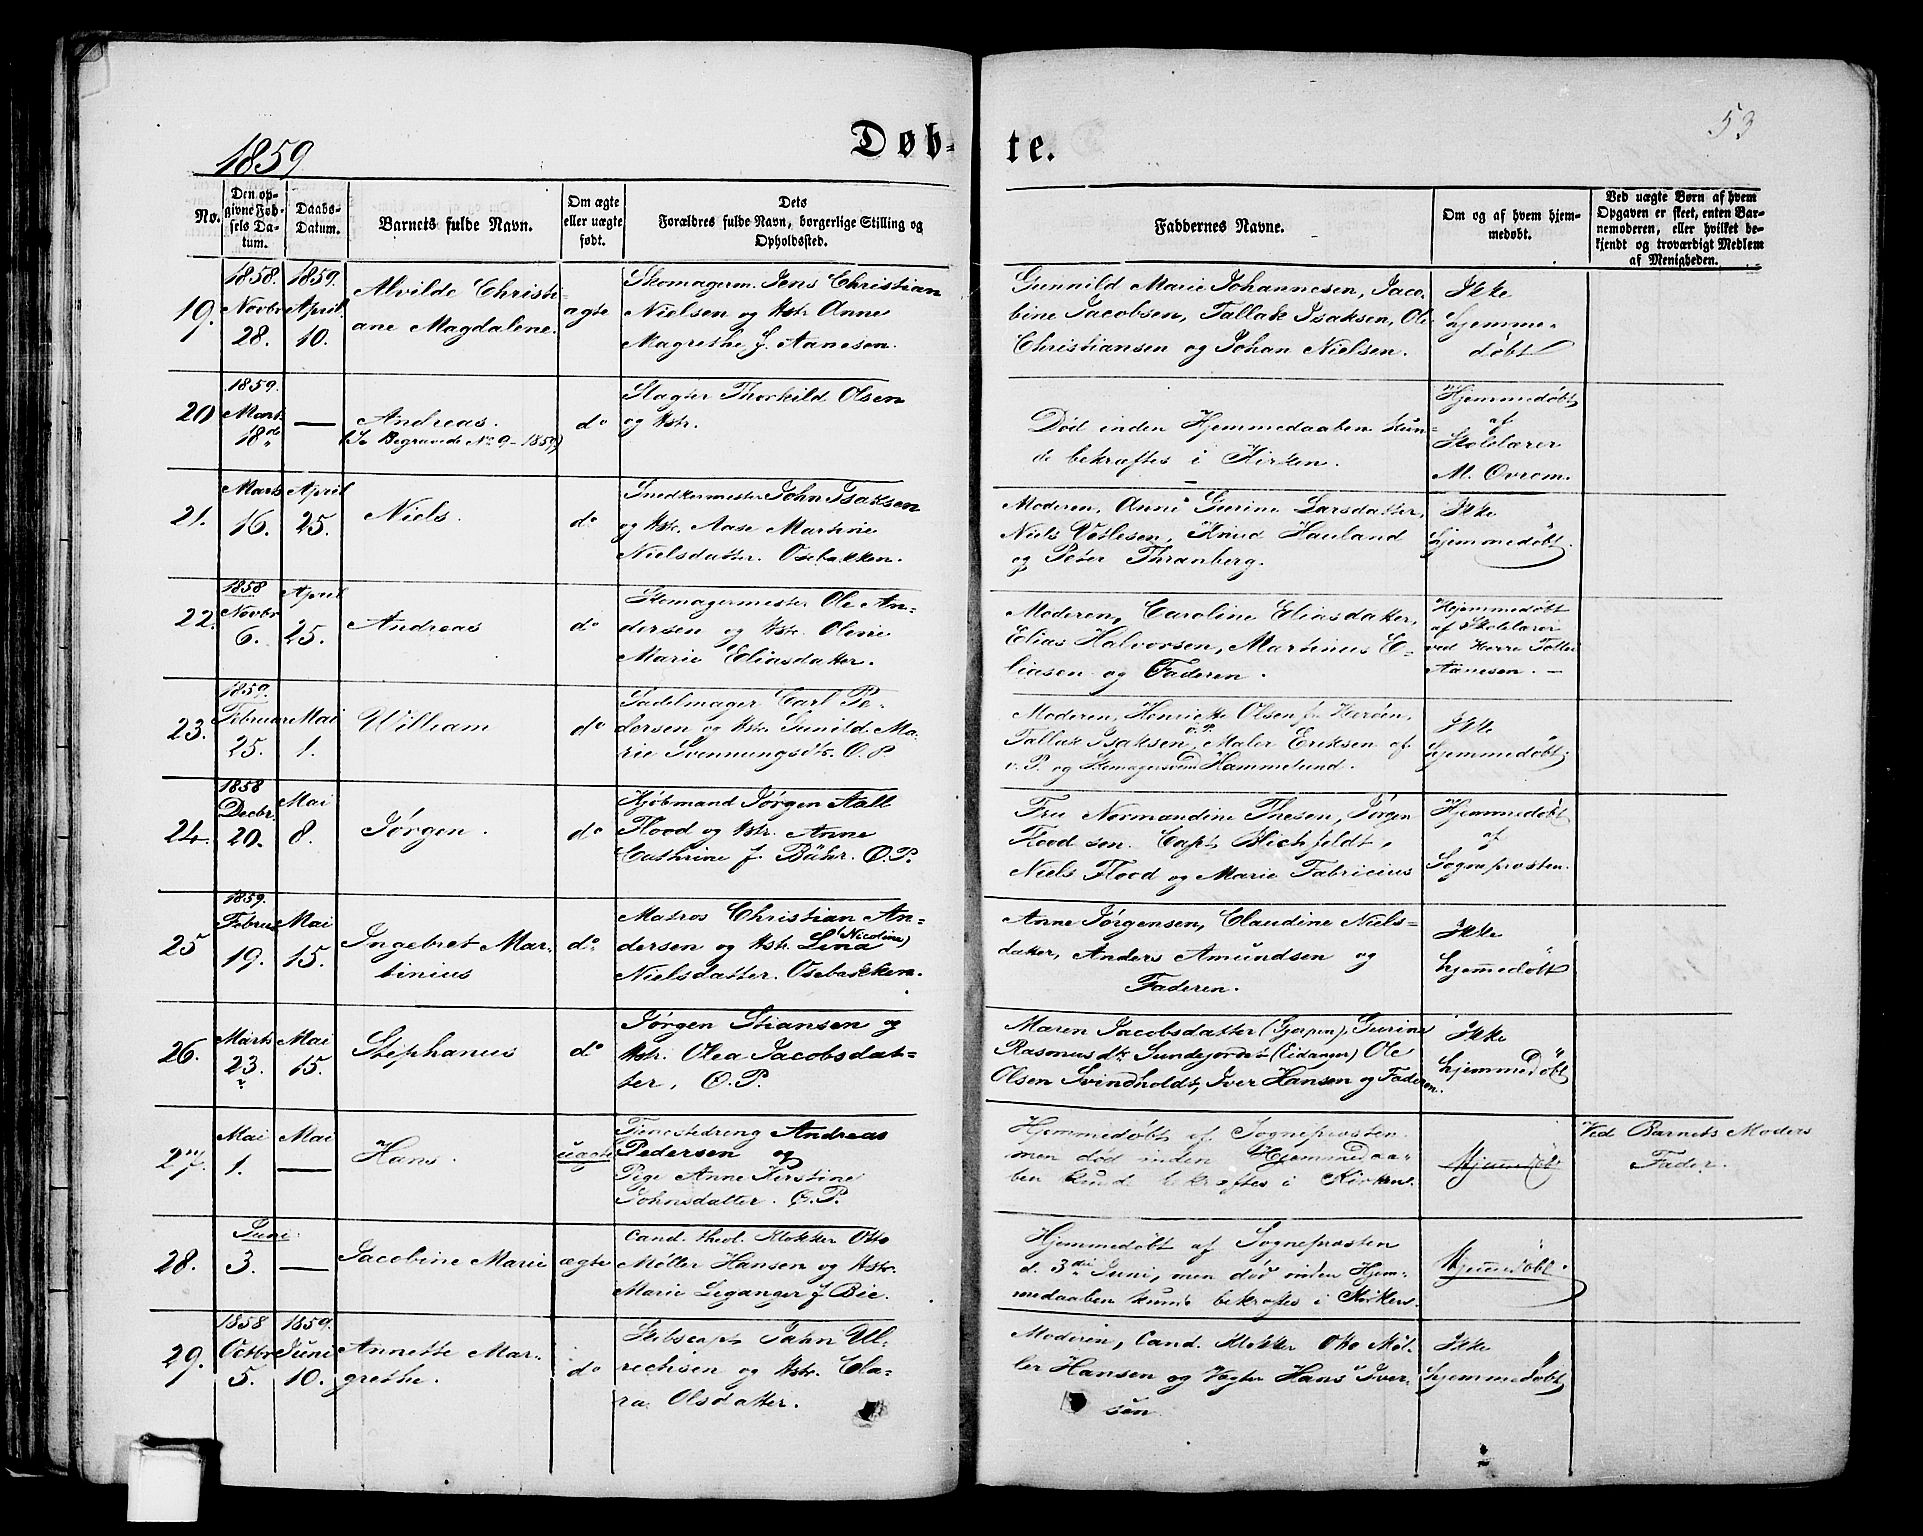 1859
Døb-
te.
53
No.
Den op-
givne Fød-
sels Da-
tum.
Daabs-
Datum.
Barnets fulde Navn.
Om ægte
eller uægte
født.
Dets
Forældres fulde Navn, borgerlige Stilling og
Opholdssted.
Faddernes Navne.
Om og af hvem hjem-
medøbt.
Ved uægte Børn af hvem
Opgaven er skeet, enten Bar-
nemoderen, eller hvilket be-
kjendt og troværdigt Medlem
af Menigheden.
19.
1858.
Novbr
28.
1859.
April
10.
Alvilde Christi-
ane Magdalene.
ægte
Skomagerm. Jens Christian
Nielsen og Hstr. Anne
Magrethe f. Aanesen.
Gunnild Marie Johannesen, Jaco-
bine Jacobsen, Tallak Isaksen, Ole
Christiansen og Johan Nielsen.
Ikke
hjemme-
døbt
20
1859.
Marts
18de
—
Andreas.
(Se Begravede No 9 - 1859)
do
Slagter Thorkild Olsen
og Hstr.
Død inden Hjemmedaaben kun-
de bekræftes i Kirken.
Hjemmedøbt
af
Skolelærer
M. Ovrom.
21.
Marts
16.
April
25.
Niels.
do
Snedkermester John Isaksen
og Hstr. Aase Martine
Nielsdatter. Osebakken.
Moderen, Anne Gurine Larsdatter,
Niels Vetlesen, Knud Hauland
og Peter Thranberg.
Ikke
hjemmedøbt.
22.
1858
Novbr
6.
April
25.
Andreas
do
Skomagermester Ole An-
dersen og Hstr. Oline
Marie Eliasdatter.
Moderen, Caroline Eliasdatter,
Elias Halvorsen, Martinus E-
liasen og Faderen.
Hjemmedøbt
af Skolelærer
ved Herre
Aanesen. —
23.
1859.
Februar
25.
Mai
1.
William
do
Sadelmager Carl Pe-
dersen og Hstr. Gunild Ma-
rie Svennungsdtr. O. P.
Moderen, Henriette Olsen fra Herøen,
Tallak Isaksen, Maler Eriksen af
v. P. og Skomagersvend Hammelund.
Ikke
hjemmedøbt.
24.
1858
Decbr.
20.
Mai
8.
Jørgen.
do
Kjøbmand Jørgen Aall
Flood og Hstr. Anne
Cathrine f. Bühr. O. P.
Fru Normandine Thesen, Jørgen
Flood sen. Capt Blichfeldt,
Niels Flood og Marie Fabricius
Hjemmedøbt
af
Sogneprosten.
25
1859.
Februar
19.
Mai
15.
Ingebret Mar-
tinius
do.
Matros Christian An-
dersen og Hstr. Lina (Nicoline)
Nielsdatter. Osebakken.
Anne Jørgensen, Claudine Niels-
datter, Anders Amundsen og
Faderen.
Ikke
hjemmedøbt
26.
Marts
23.
Mai
15.
Stephanus
do
Jørgen Stiansen og
Hstr. Olea Jacobsdat-
ter, O. P.
Maren Jacobsdatter (Gjerpen), Gurine
Rasmusdtr. Sundejordet (Eidanger) Ole
Olsen Svindholdt, Iver Hansen og Faderen.
Ikke
hjemmedøbt
27.
Mai
1.
Mai
—
Hans.
uægte
Tjenestedreng Andreas
Pedersen og
Pige Anne Kirstine
Johnsdatter. O. P.
Hjemmedøbt af Sogneprosten
men død inden Hjemmedaa-
ben kunde bekræftes i Kirken.
Hjemmedøbt
Ved Barnets Moders
Fader.
28.
Juni.
3.
—
Jacobine Marie
ægte
Cand. theol. Klokker Otto
Møller Hansen og Hstr.
Marie Leganger f. Bie.
Hjemmedøbt af Sogneprosten
d. 3die Juni, men død inden Hjem-
medaaben kunde bekræftes i Kirken.
Hjemmedøbt.
29.
1858
Octbr
5.
1859.
Juni
10.
Annette Mar-
grethe.
do
Skibscapt John Ul-
richsen og Hstr. Cla-
ra Olsdatter.
Moderen, Cand. Klokker Otto Møl-
ler Hansen og Vægter Hans Iver-
sen
Ikke
hjemmedøbt